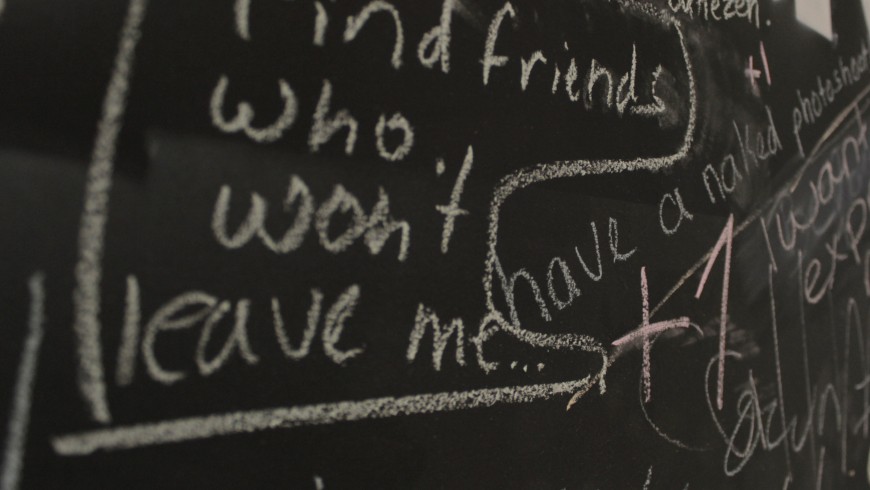 find friends
who
won't
leave me...
+1
have a naked photoshoot
+1
I want